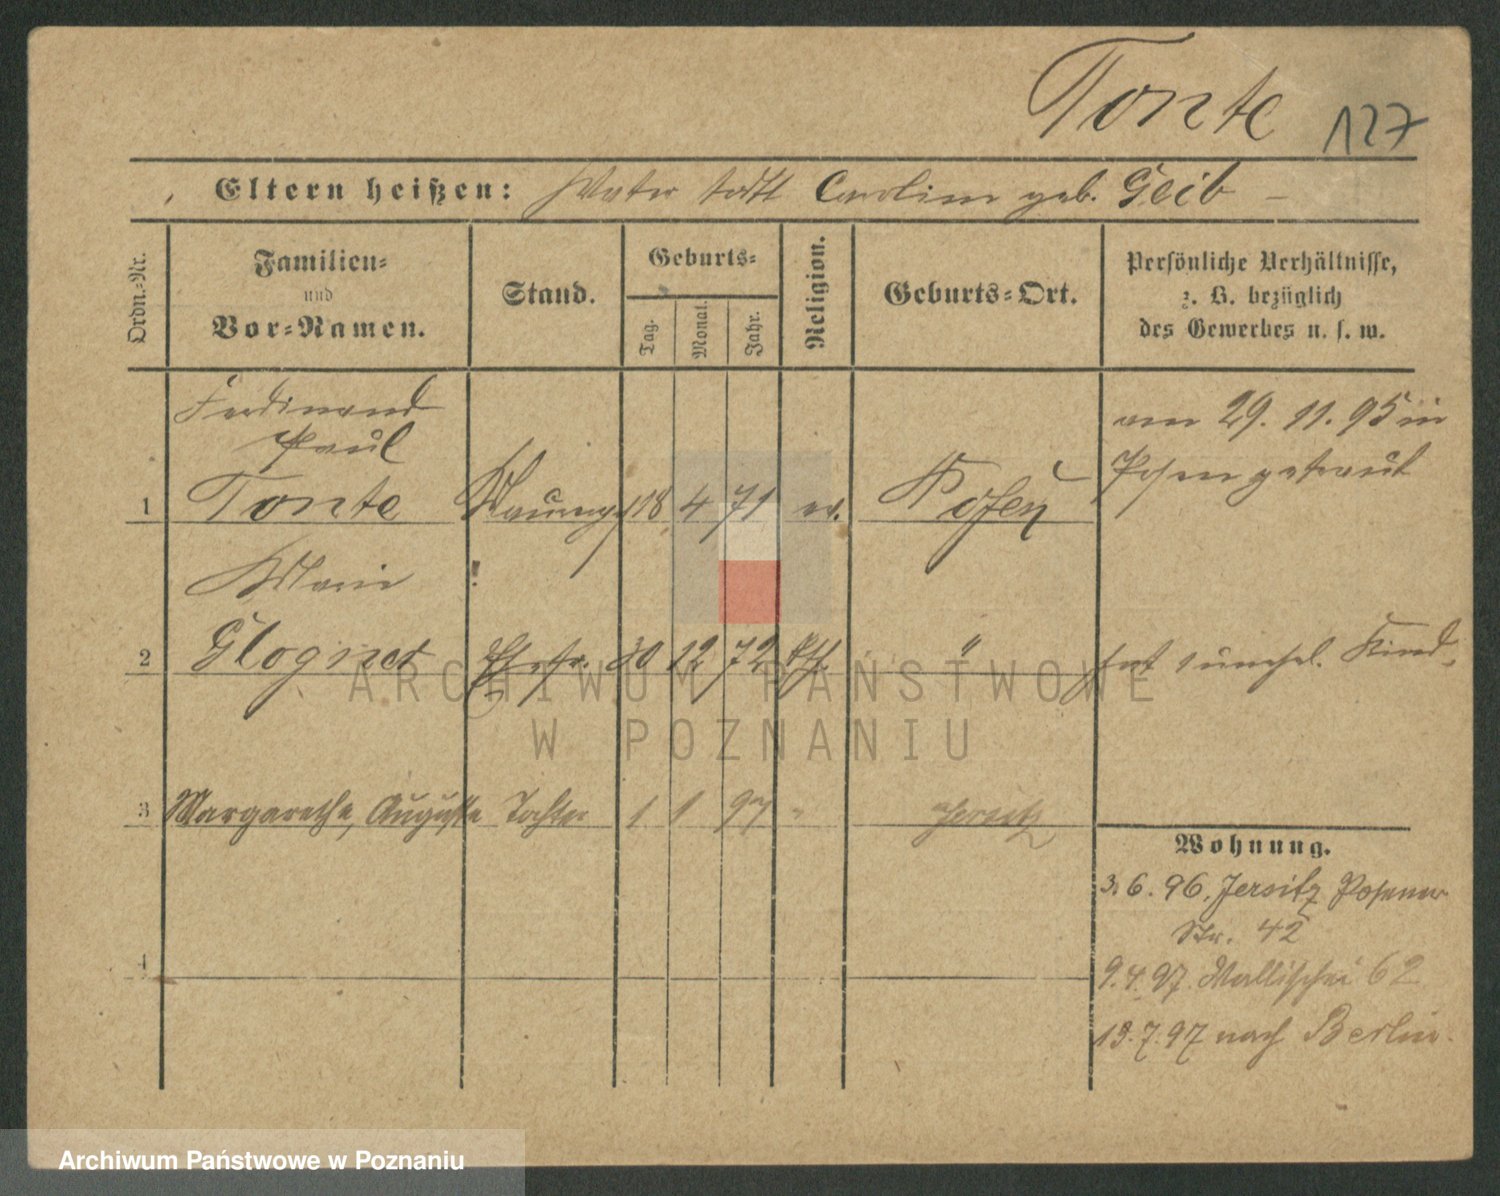 Tonte 127
Eltern heißen: Vater todt Carolina geb. Geib
Ordn.-Nr.
Familien-
und
Vor-Namen.
Stand.
Geburts-
Tag.
Monat.
Jahr.
Religion.
Geburts-Ort.
Persönliche Verhältnisse,
z. B. bezüglich
des Gewerbes u. s. w.
Ferdinand
Paul
1 Tonte 18 4 71 ev. Posen
am 29. 11. 95 in
Posen getraut
Marie
2 Glogner Ehefr. 30 12 72 kth. "
hat 1 unehel. Kind.
3 Margarethe, Auguste Tochter 1 1 97 " Jersitz
4
Wohnung.
3. 6. 96. Jersitz Posener
Str. 42
9. 4. 97. Wallischei 62
13. 7. 97 nach Berlin.
ARCHIWUM PAŃSTWOWE
W POZNANIU
Archiwum Państwowe w Poznaniu